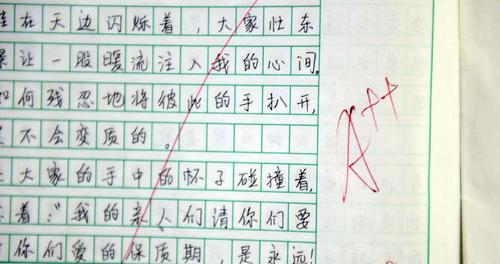 在天边闪烁着，大家忙东
让一股暖流注入我的心间。
如何残忍地将彼此的手扒开，
不会变质的。
大家的手中的杯子碰撞着，
着："我的亲人们请你们要
你们爱的保质期，是永远！
A++